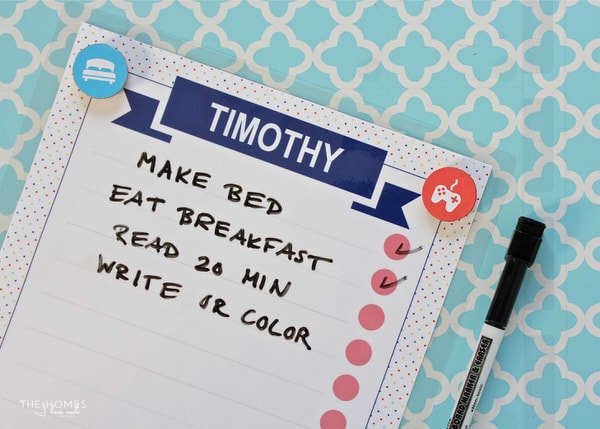 TIMOTHY
MAKE BED
EAT BREAKFAST
READ 20 MIN
WRITE OR COLOR
BOARD MARKER & ERASER
THE HOMES